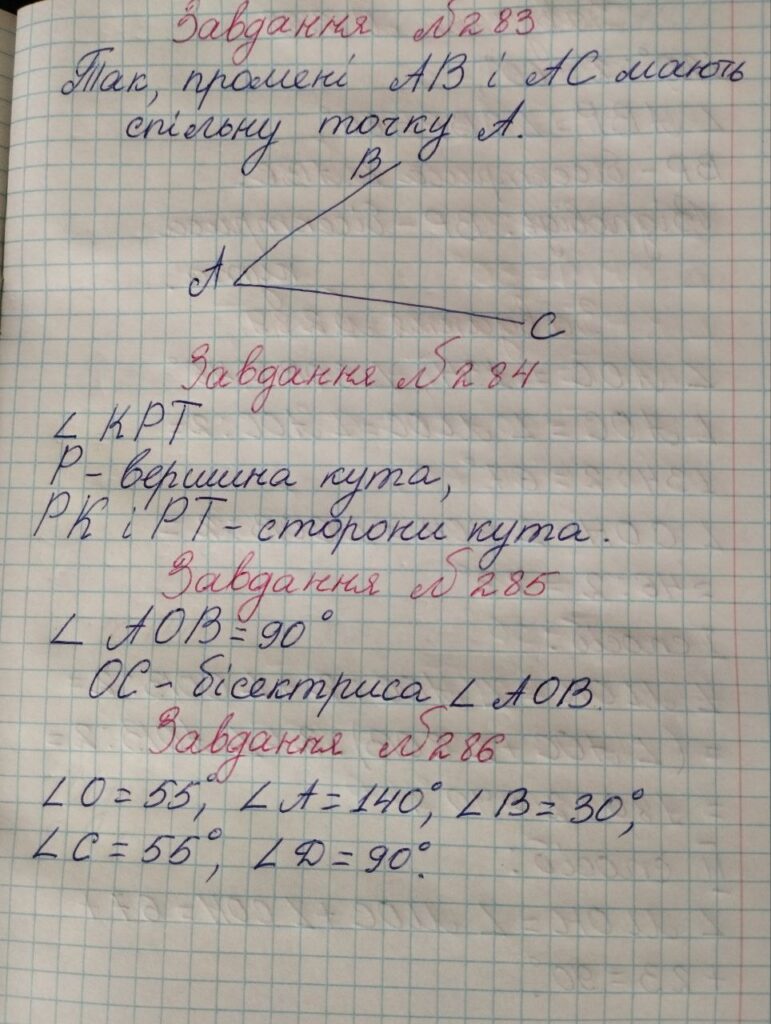 Завдання №283
Так, промені AB і AC мають
спільну точку A.
B
A
C
Завдання №284
∠ KPT
P - вершина кута,
PK і PT - сторони кута.
Завдання №285
∠ AOB = 90°
OC - бісектриса ∠ AOB.
Завдання №286
∠O = 55°, ∠A = 140°, ∠B = 30°,
∠C = 55°, ∠D = 90°.